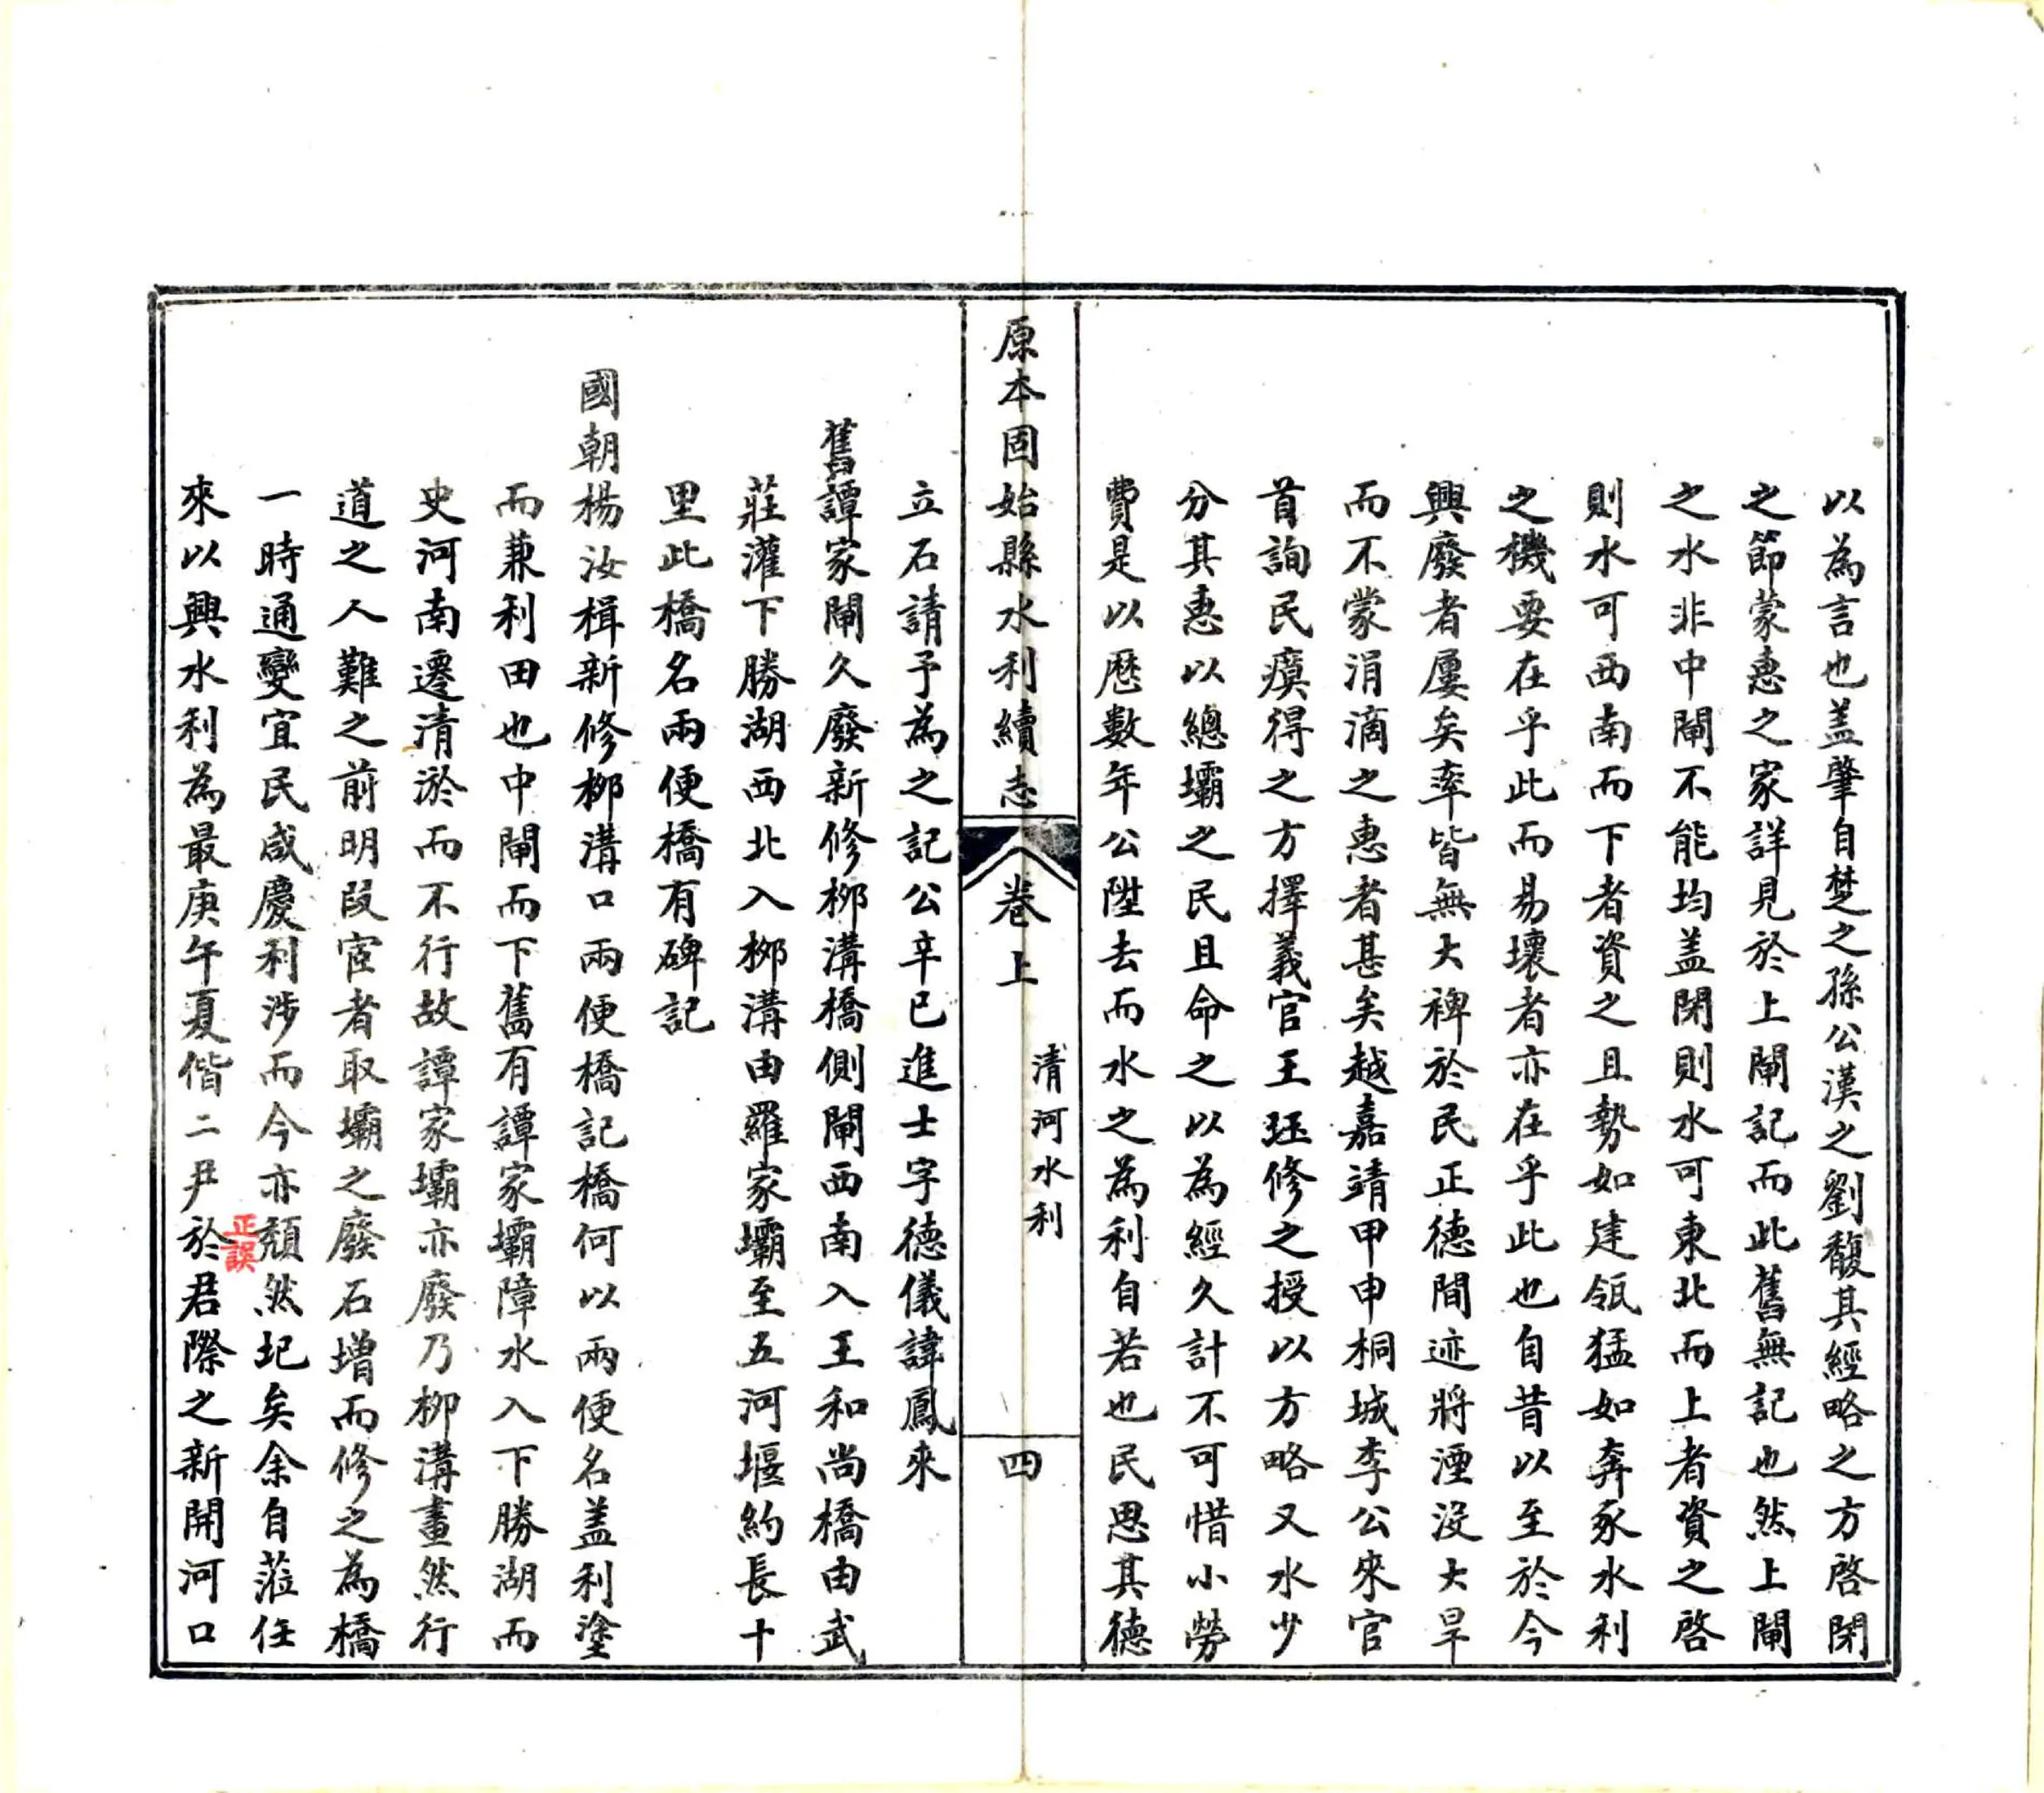 以為言也盖肇自楚之孫公漢之劉馥其經略之方啓閉
之節蒙惠之家詳見於上閘記而此舊無記也然上閘
之水非中閘不能均盖閉則水可東北而上者資之啓
則水可西南而下者資之且勢如建瓴猛如奔豕水利
之機要在乎此而易壞者亦在乎此也自昔以至於今
興廢者屢矣率皆無大裨於民正德間迹將湮没大旱
而不蒙涓滴之惠者甚矣越嘉靖甲申桐城李公來官
首詢民瘼得之方擇義官王珏修之授以方略又水少
分其惠以總壩之民且命之以為經久計不可惜小勞
費是以歴数年公陞去而水之為利自若也民思其德
原本固始縣水利續志
卷上
清河水利
四
立石請予為之記公辛巳進士字德儀諱鳳來
舊譚家閘久廢新修柳溝橋側閘西南入王和尚橋由武
莊灌下勝湖西北入柳溝由羅家壩至五河堰約長十
里此橋名兩便橋有碑記
國朝楊汝楫新修柳溝口兩便橋記橋何以兩便名盖利塗
而兼利田也中閘而下舊有譚家壩障水入下勝湖而
史河南遷清淤而不行故譚家壩亦廢乃柳溝畫然行
道之人難之前明段宦者取壩之廢石增而修之為橋
一時通變宜民咸慶利涉而今亦頹然圯矣余自蒞任
正誤
來以興水利為最庚午夏偕二尹於君際之新開河口